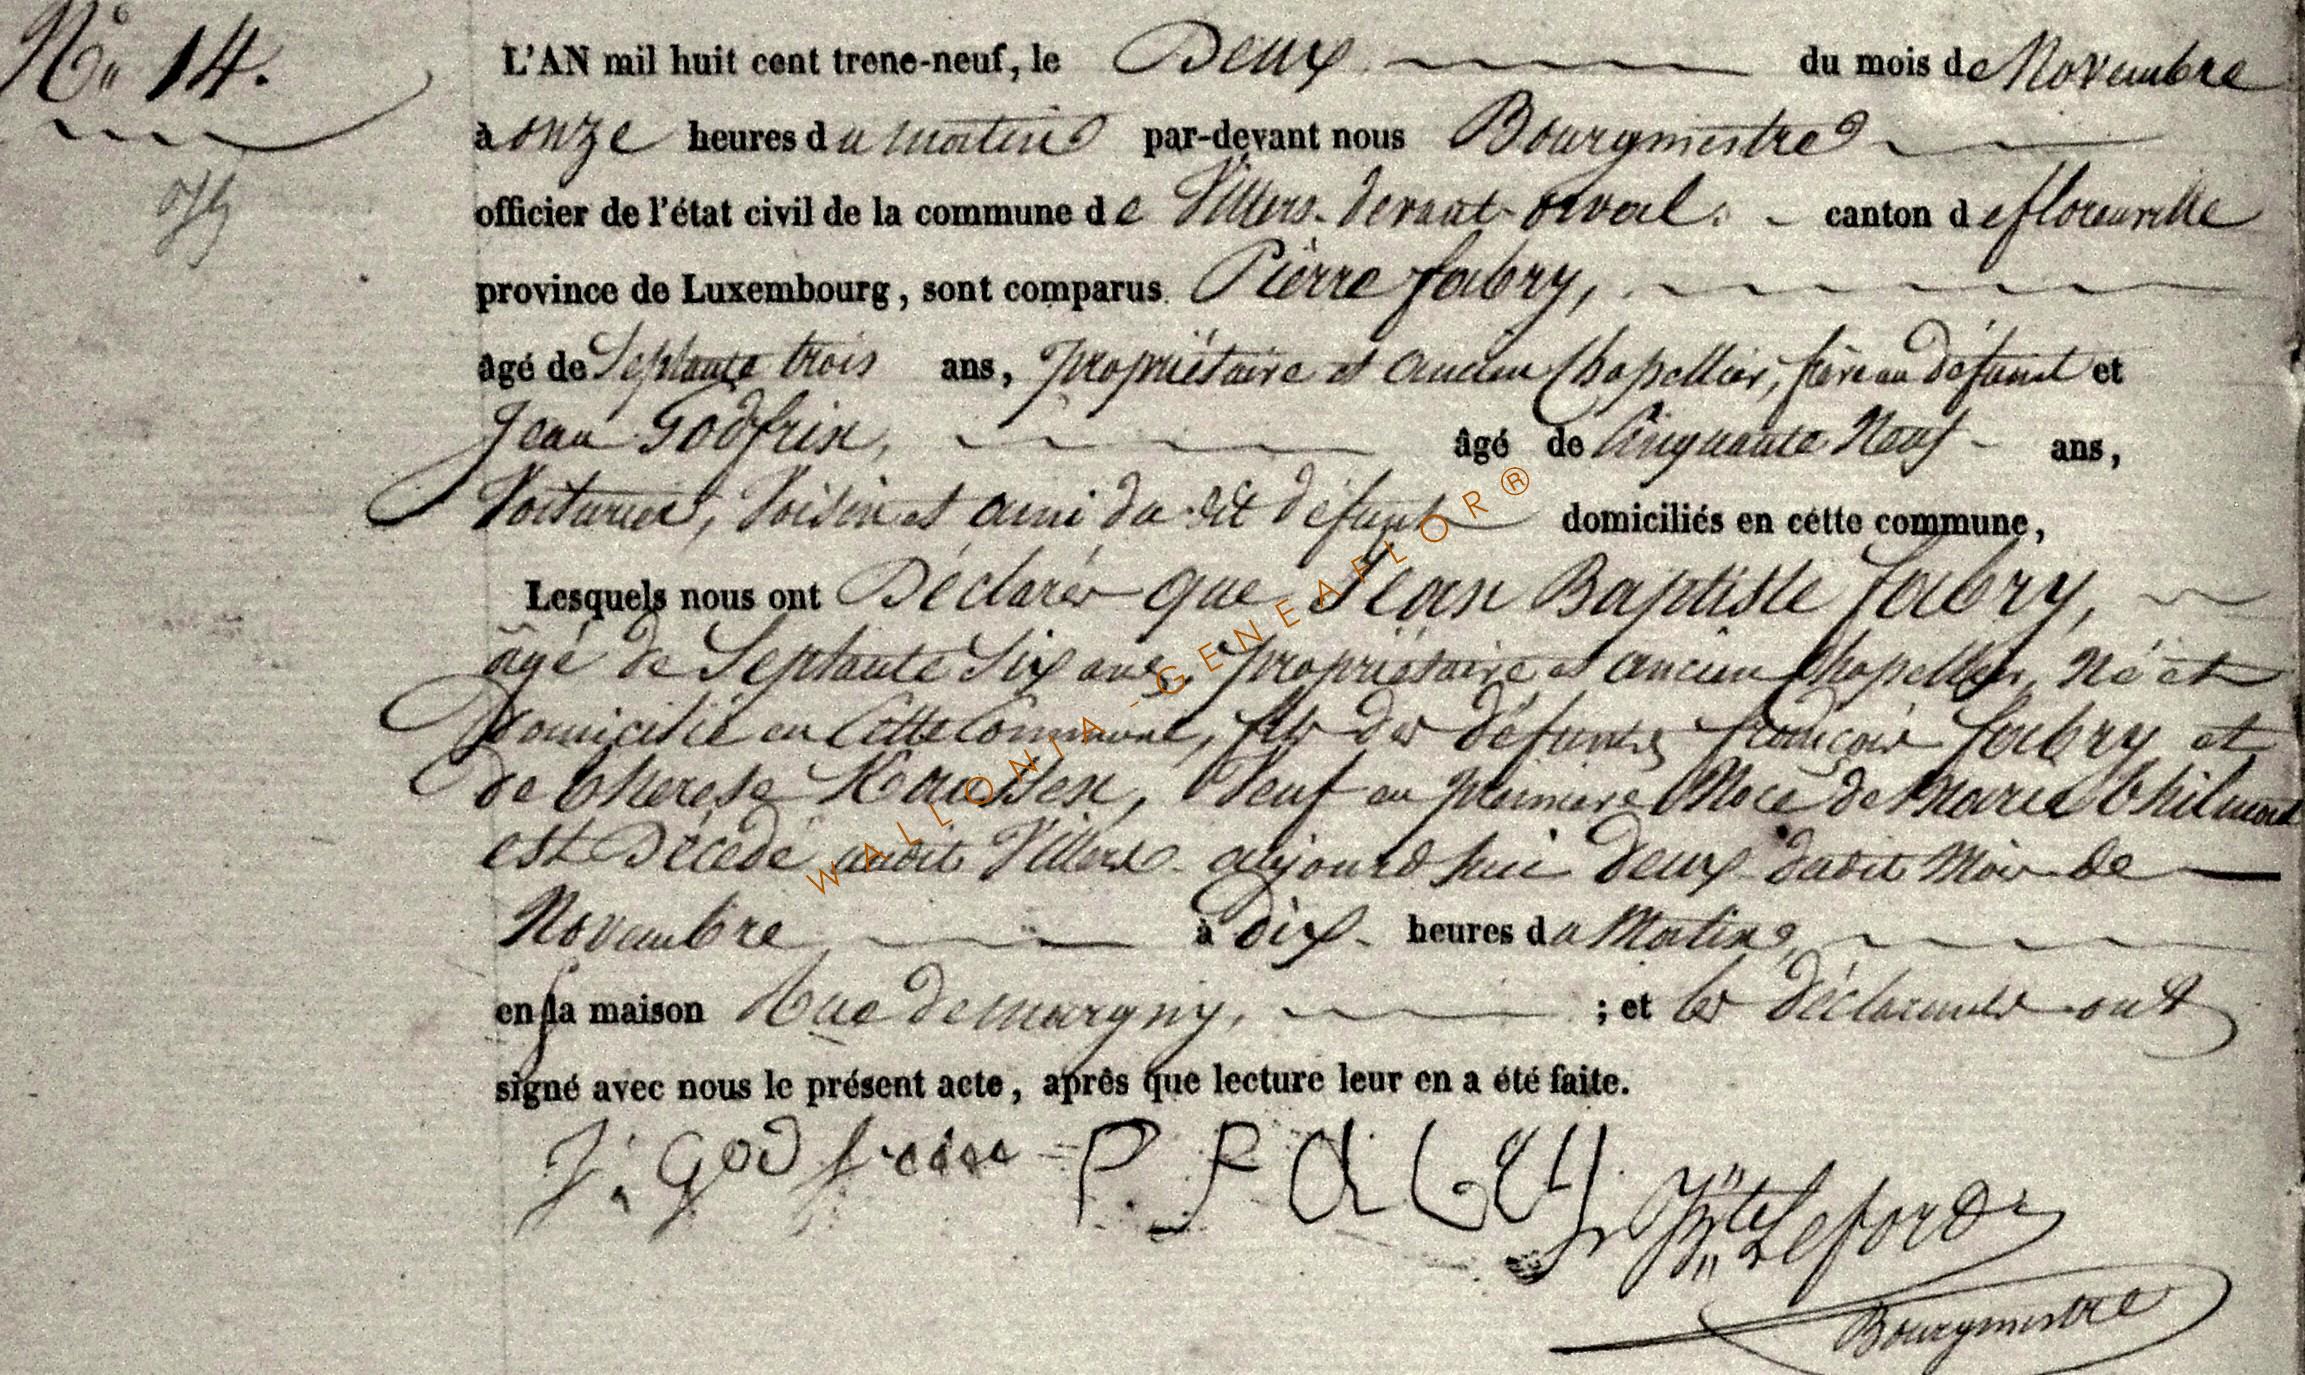 N° 14.
L'AN mil huit cent trene-neuf, le Deux du mois de Novembre
à onze heures du matin par-devant nous Bourgmestre
officier de l'état civil de la commune de Villers-devant-orval. canton de florenville
province de Luxembourg, sont comparus Pierre fabry,
âgé de Septante trois ans, propriétaire et ancien Chapellier, frère au défunt et
Jean Godfrin, âgé de Cinquante Neuf ans,
Voiturier, Voisin et ami du dit défunt domiciliés en cette commune,
Lesquels nous ont Déclarés que Jean Baptiste fabry,
âgé de Septante Six ans, propriétaire et ancien Chapellier, Né et
Domicilié en Cette Commune, fils des défunts françois fabry et
de therese, Veuf en premiere Noce de Marie
est Décédé audit Villers aujourd'hui deux dudit Mois de
Novembre à Dix heures du Matin,
en sa maison Rue de margny, ; et les déclarants ont
signé avec nous le présent acte, après que lecture leur en a été faite.
J. God P F
Bourgmestre
WALLONIA-GENEAFLOR®